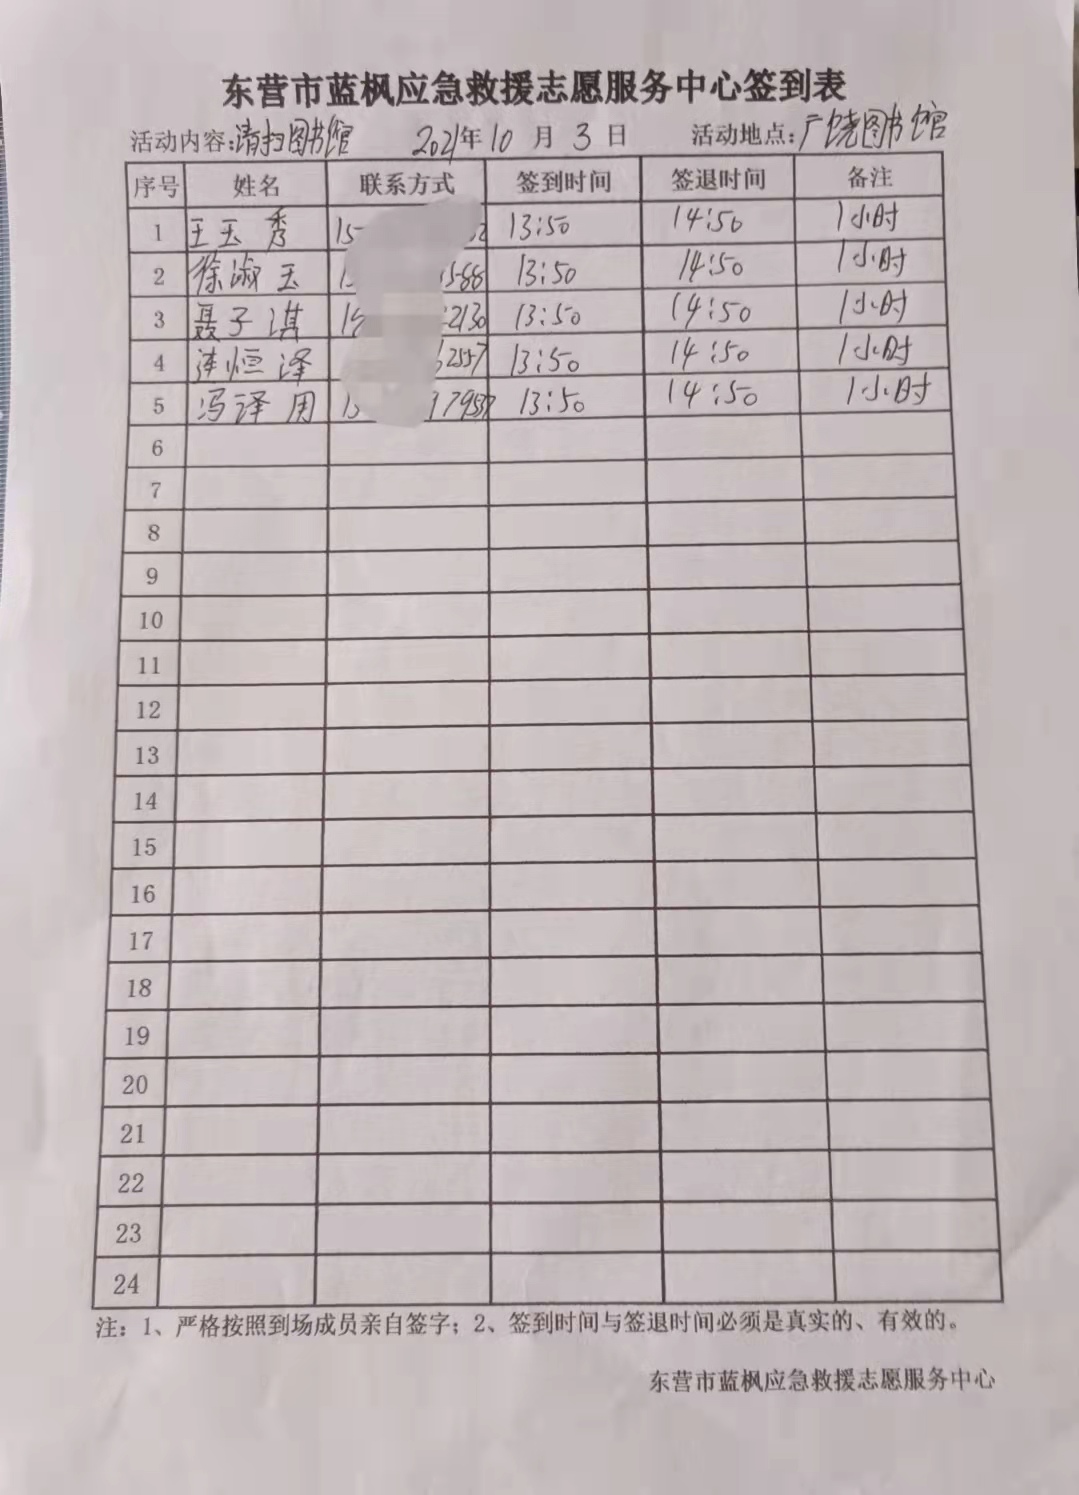 东营市蓝枫应急救援志愿服务中心签到表
活动内容:清扫图书馆 2021年10月3日 活动地点:广饶图书馆
序号 姓名 联系方式 签到时间 签退时间 备注
1 王玉秀 15 32 13:50 14:50 1小时
2 徐淑玉 1 1588 13:50 14:50 1小时
3 聂子淇 15 2130 13:50 14:50 1小时
4 恒泽 62557 13:50 14:50 1小时
5 冯译用 13 17957 13:50 14:50 1小时
6
7
8
9
10
11
12
13
14
15
16
17
18
19
20
21
22
23
24
注：1、严格按照到场成员亲自签字；2、签到时间与签退时间必须是真实的、有效的。
东营市蓝枫应急救援志愿服务中心